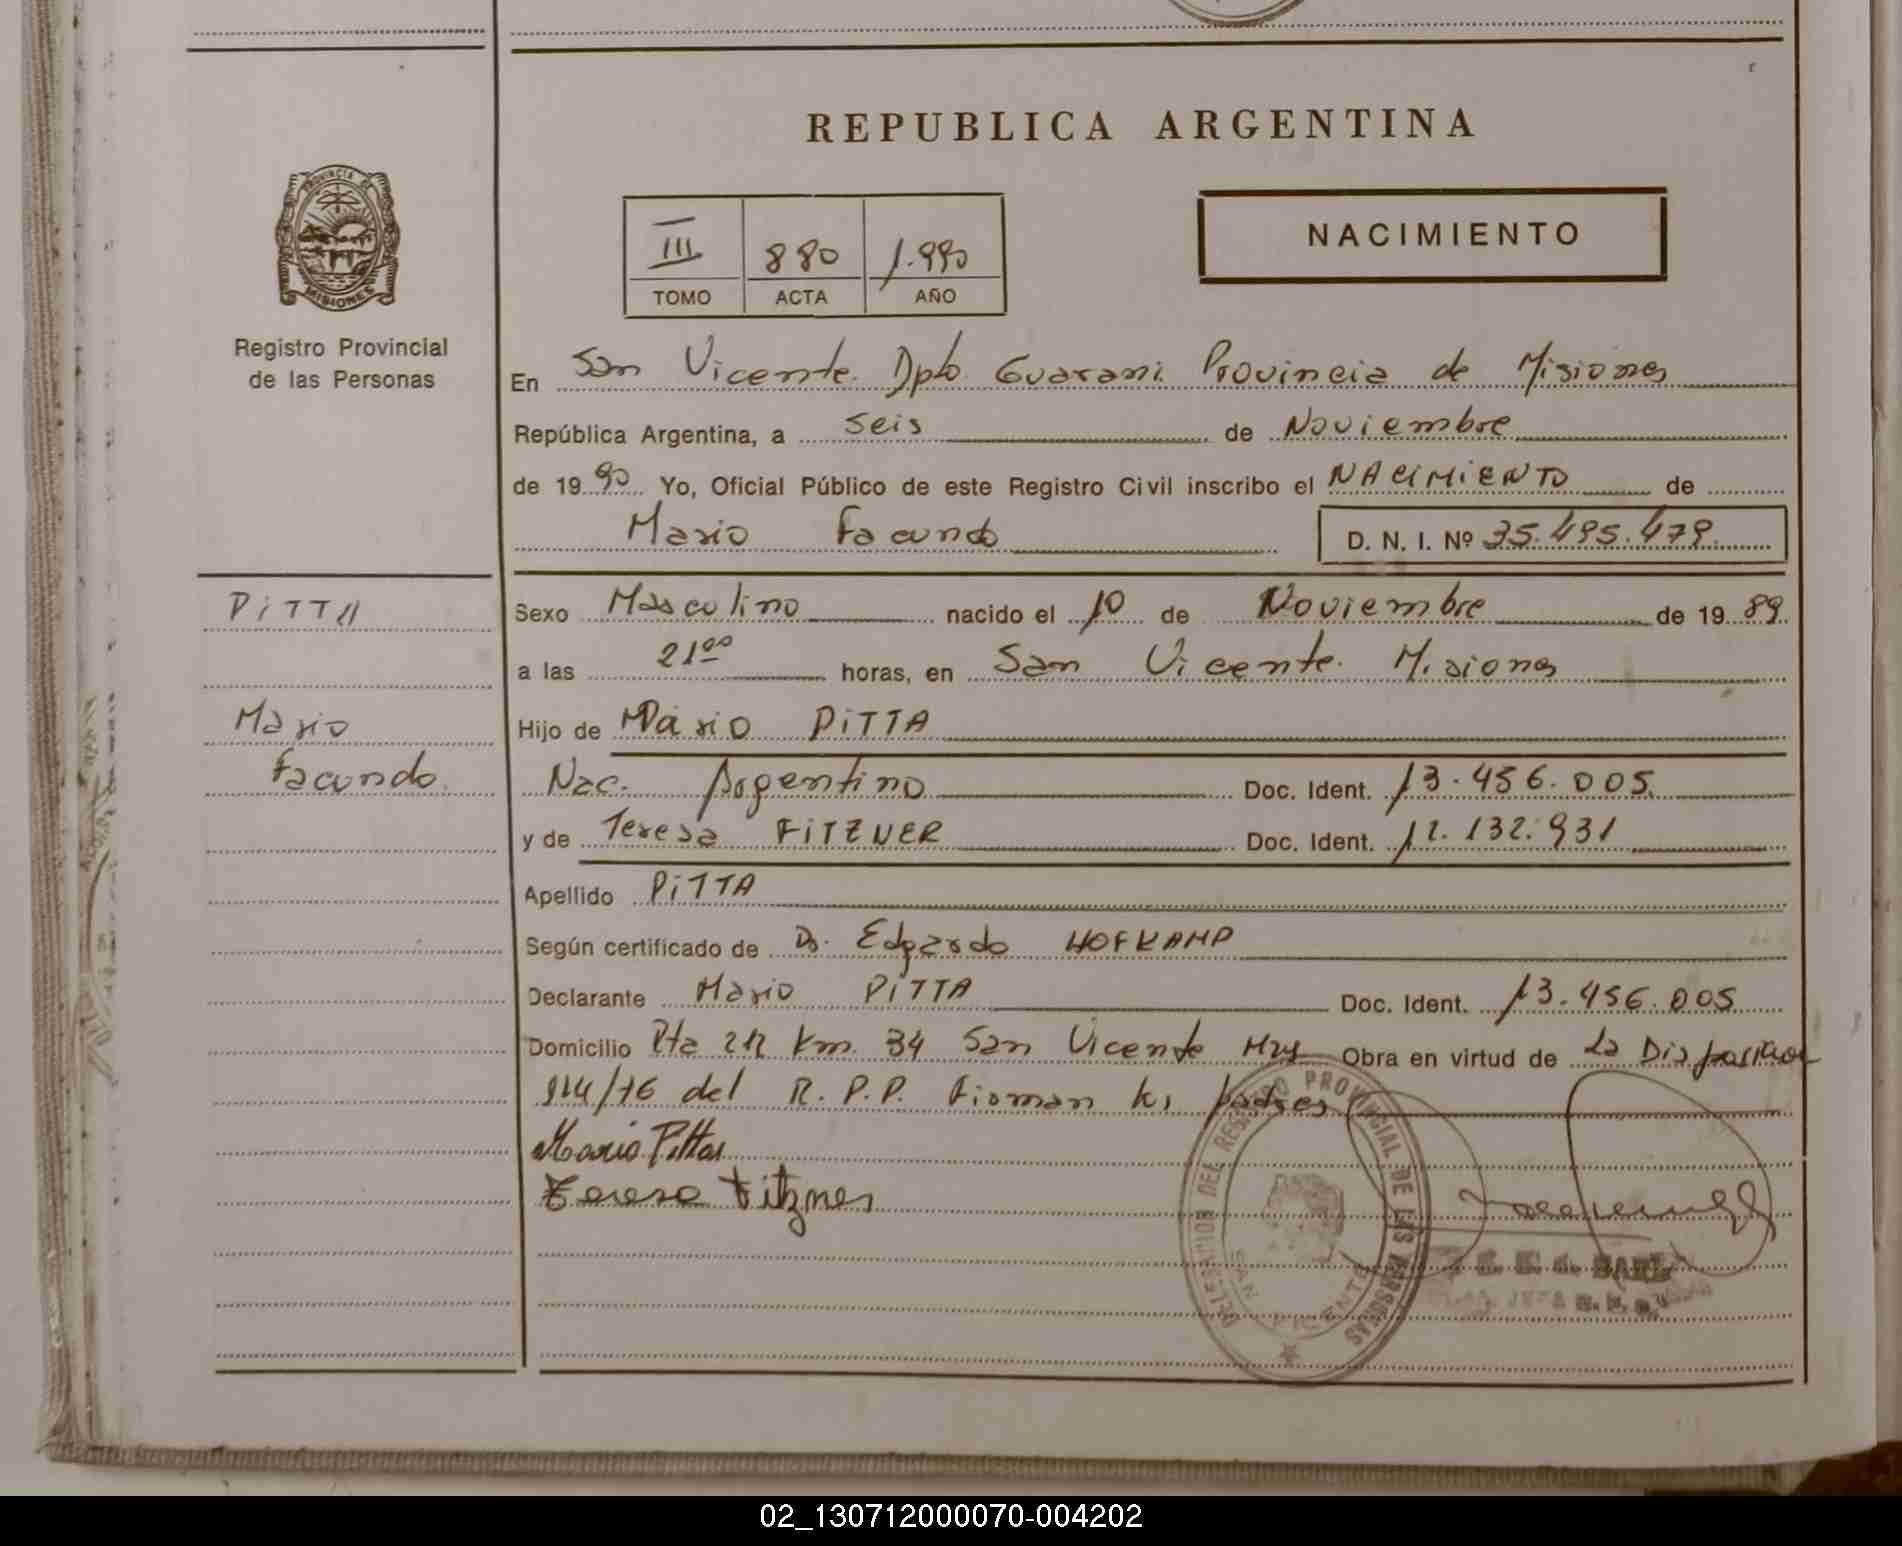 REPUBLICA ARGENTINA
PROVINCIA DE
MISIONES
Registro Provincial
de las Personas
III 880 1.990
TOMO ACTA AÑO
NACIMIENTO
En San Vicente. Dpto. Guarani. Provincia de Misiones
República Argentina, a seis de Noviembre
de 1990 Yo, Oficial Público de este Registro Civil inscribo el NACIMIENTO de
Mario Facundo D. N. I. Nº 35.495.479.
PITTA
Mario
Facundo.
Sexo Masculino nacido el 10 de Noviembre de 1989
a las 21⁰⁰ horas, en San Vicente. Misiones
Hijo de Mario PITTA
Nac. Argentino Doc. Ident. 13.456.005.
y de Teresa FITZNER Doc. Ident. 12.132.931
Apellido PITTA
Según certificado de Dr. Edgardo HOFKAMP
Declarante Mario PITTA Doc. Ident. 13.456.005
Domicilio Rta 212 Km. 34 San Vicente Mns Obra en virtud de La Disposicion
114/76 del R. P. P. Firman los padres
Mario Pitta
Teresa Fitzner
DELEGACION DEL REGISTRO PROVINCIAL DE LAS PERSONAS
SAN VICENTE
JEFA
02_130712000070-004202